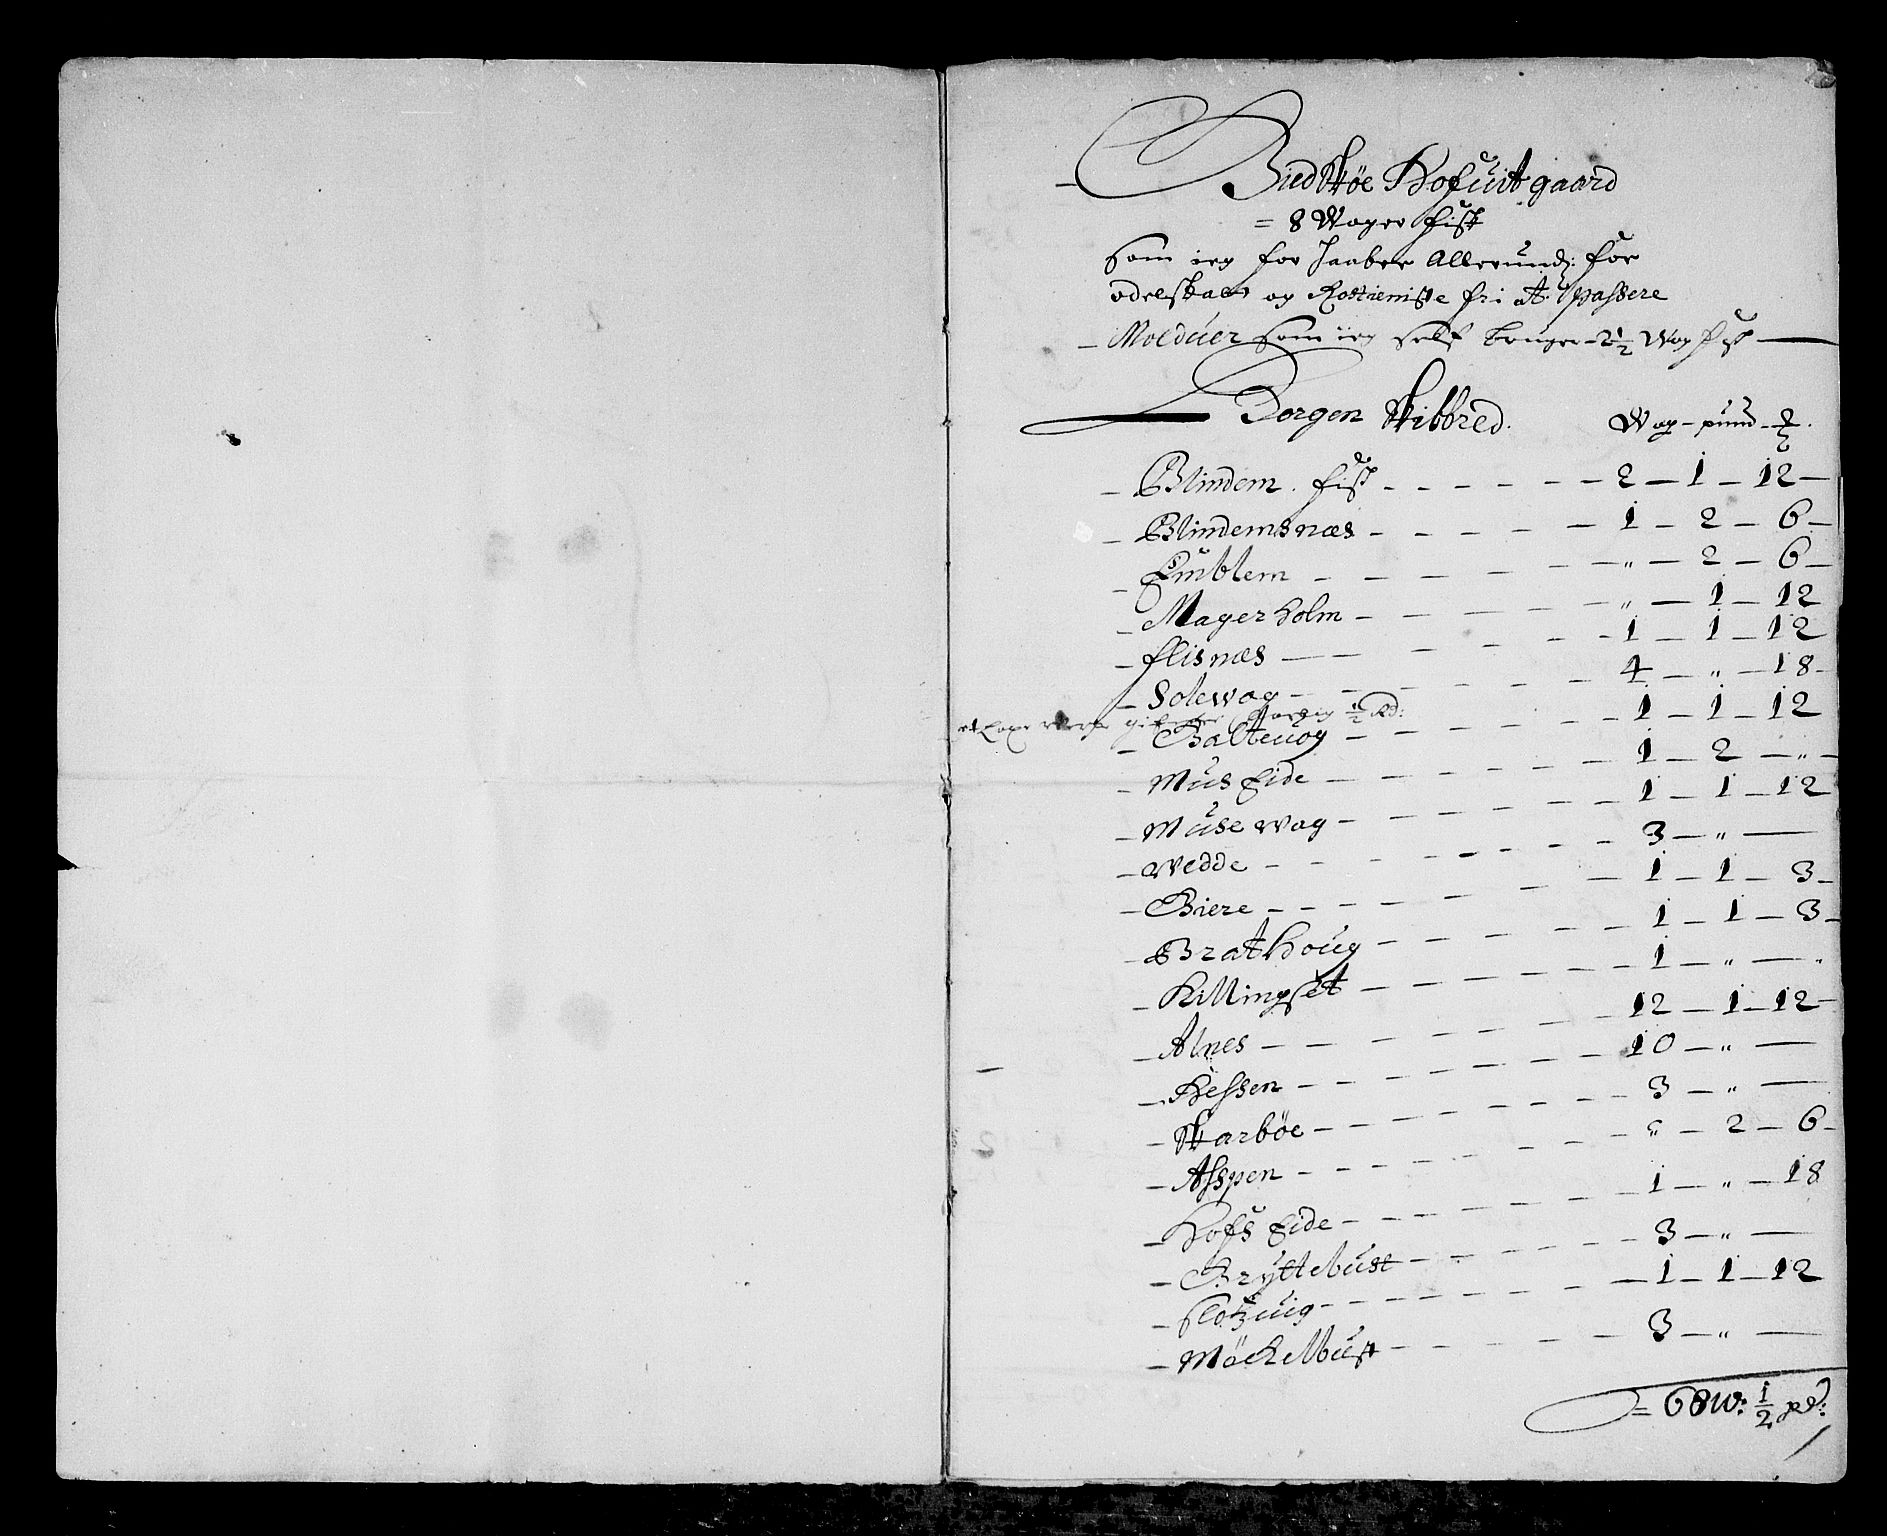 Giedskøe Hofuit gaard
= 8 Woger fisk
som ieg for haaber Allerund: for
odelskatt og Rostieniste fri at passere
– Molduer som ieg self bruger – 2 1/2 Wog fisk
Borgen Skibbred. Wog – pund – ℔.
– Blindem. fisk – 2 – 1 – 12 –
– Blindemsnæs – 1 – 2 – 6 –
– Emblem – „ – 2 – 6 –
– Mager holm – „ – 1 – 12
– flisnæs – 1 – 1 – 12
– Solewog – 4 – „ – 18 –
et Laxe werp 1/2 Rd:
– Balteuog – 1 – 1 – 12
– Mus Eide – 1 – 2 – „ –
– Muse wog – 1 – 1 – 12
– Wedde – 3 – „ –
– Giere – 1 – 1 – 3 –
– Brathoug – 1 – 1 – 3 –
– Killingset – 1 – „ – „
– Alnes – 12 – 1 – 12 –
– Hessen – 10 – „ –
– Skarbøe – 3 – „ –
– Asspen – „ – 2 – 6 –
– Hofs Eide – 1 – „ – 18
– Gryttebust – 3 – „ –
– flotzuig – 1 – 1 – 12
– Møckelbust – 3 – „ –
= 68 W: 1/2 pd: